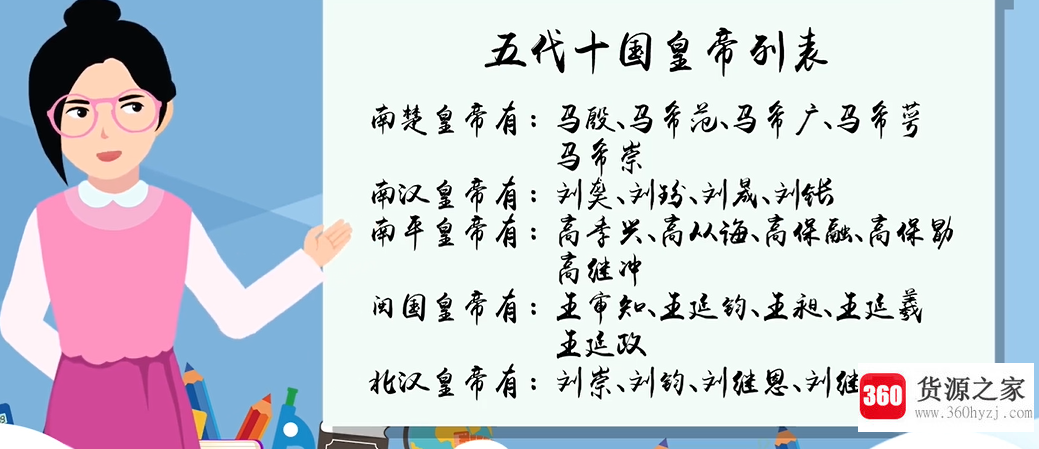 五代十国皇帝列表
南楚皇帝有：马殷、马希范、马希广、马希萼
马希崇
南汉皇帝有：刘䶮、刘玢、刘晟、刘鋹
南平皇帝有：高季兴、高从诲、高保融、高保勖
高继冲
闵国皇帝有：王审知、王延钧、王昶、王延羲
王延政
北汉皇帝有：刘崇、刘钧、刘继恩、刘继
360 货源之家
www.360hyzj.com